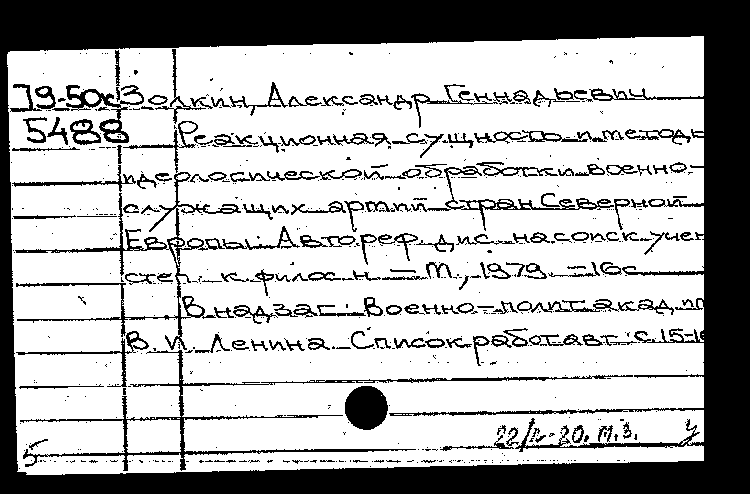 79-50к Золкин, Александр Геннадьевич
5488 Реакционная сущность и методы
идеологической обработки военно-
служащих армий стран Северной
Европы: Автореф. дис. на соиск. учен
степ. к. филос. н. – М., 1979. – 16с
В надзаг.: Военно-полит. акад. им
В. И. Ленина. Список работ авт.: с. 15-16
22/IV-80. М.З. У
5